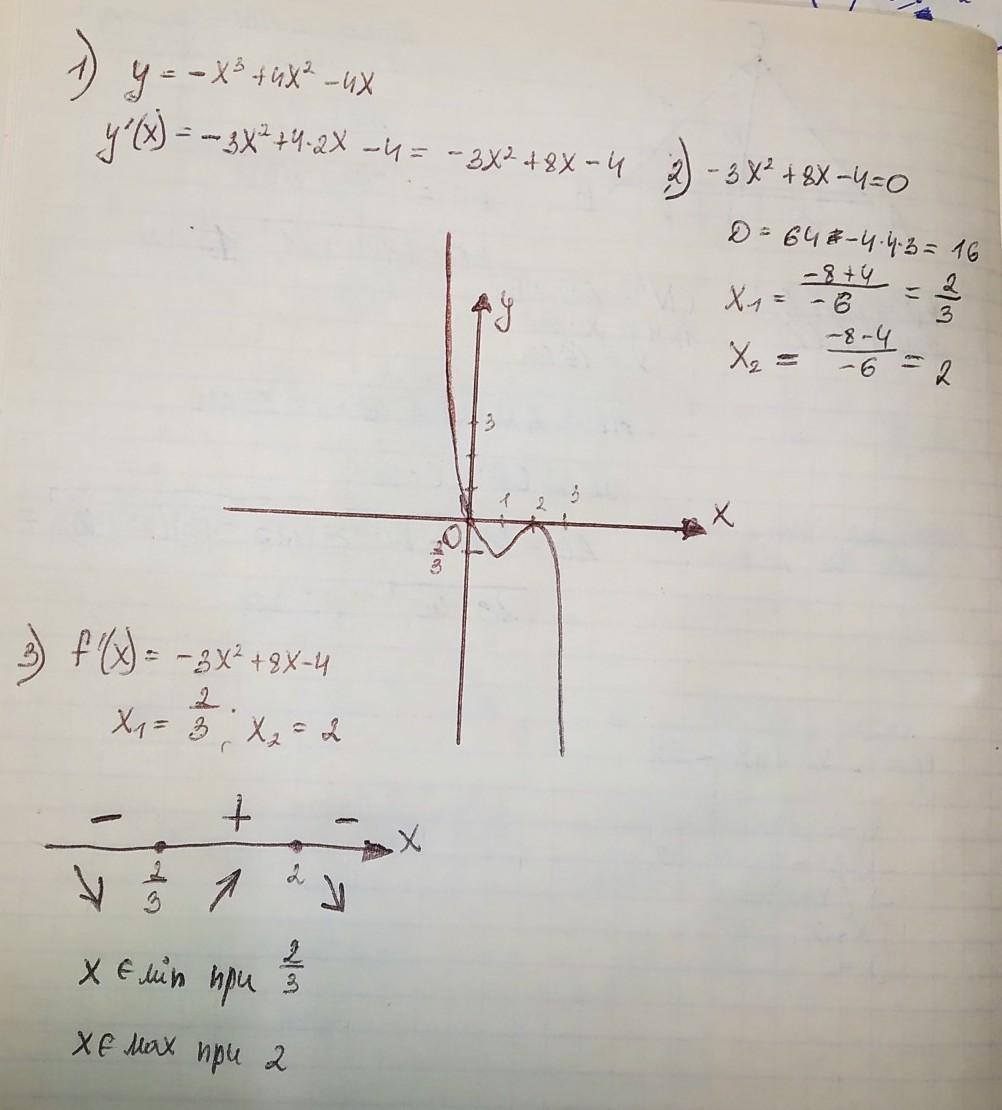 1) y = -x³ + 4x² - 4x
y'(x) = -3x² + 4·2x - 4 = -3x² + 8x - 4
2) -3x² + 8x - 4 = 0
D = 64 - 4·4·3 = 16
x₁ = (-8+4)/(-6) = 2/3
x₂ = (-8-4)/(-6) = 2
y
3
1 2 3
x
0
2/3
3) f'(x) = -3x² + 8x - 4
x₁ = 2/3; x₂ = 2
- + -
x
2/3 2
↘ ↗ ↘
x ∈ min при 2/3
x ∈ max при 2